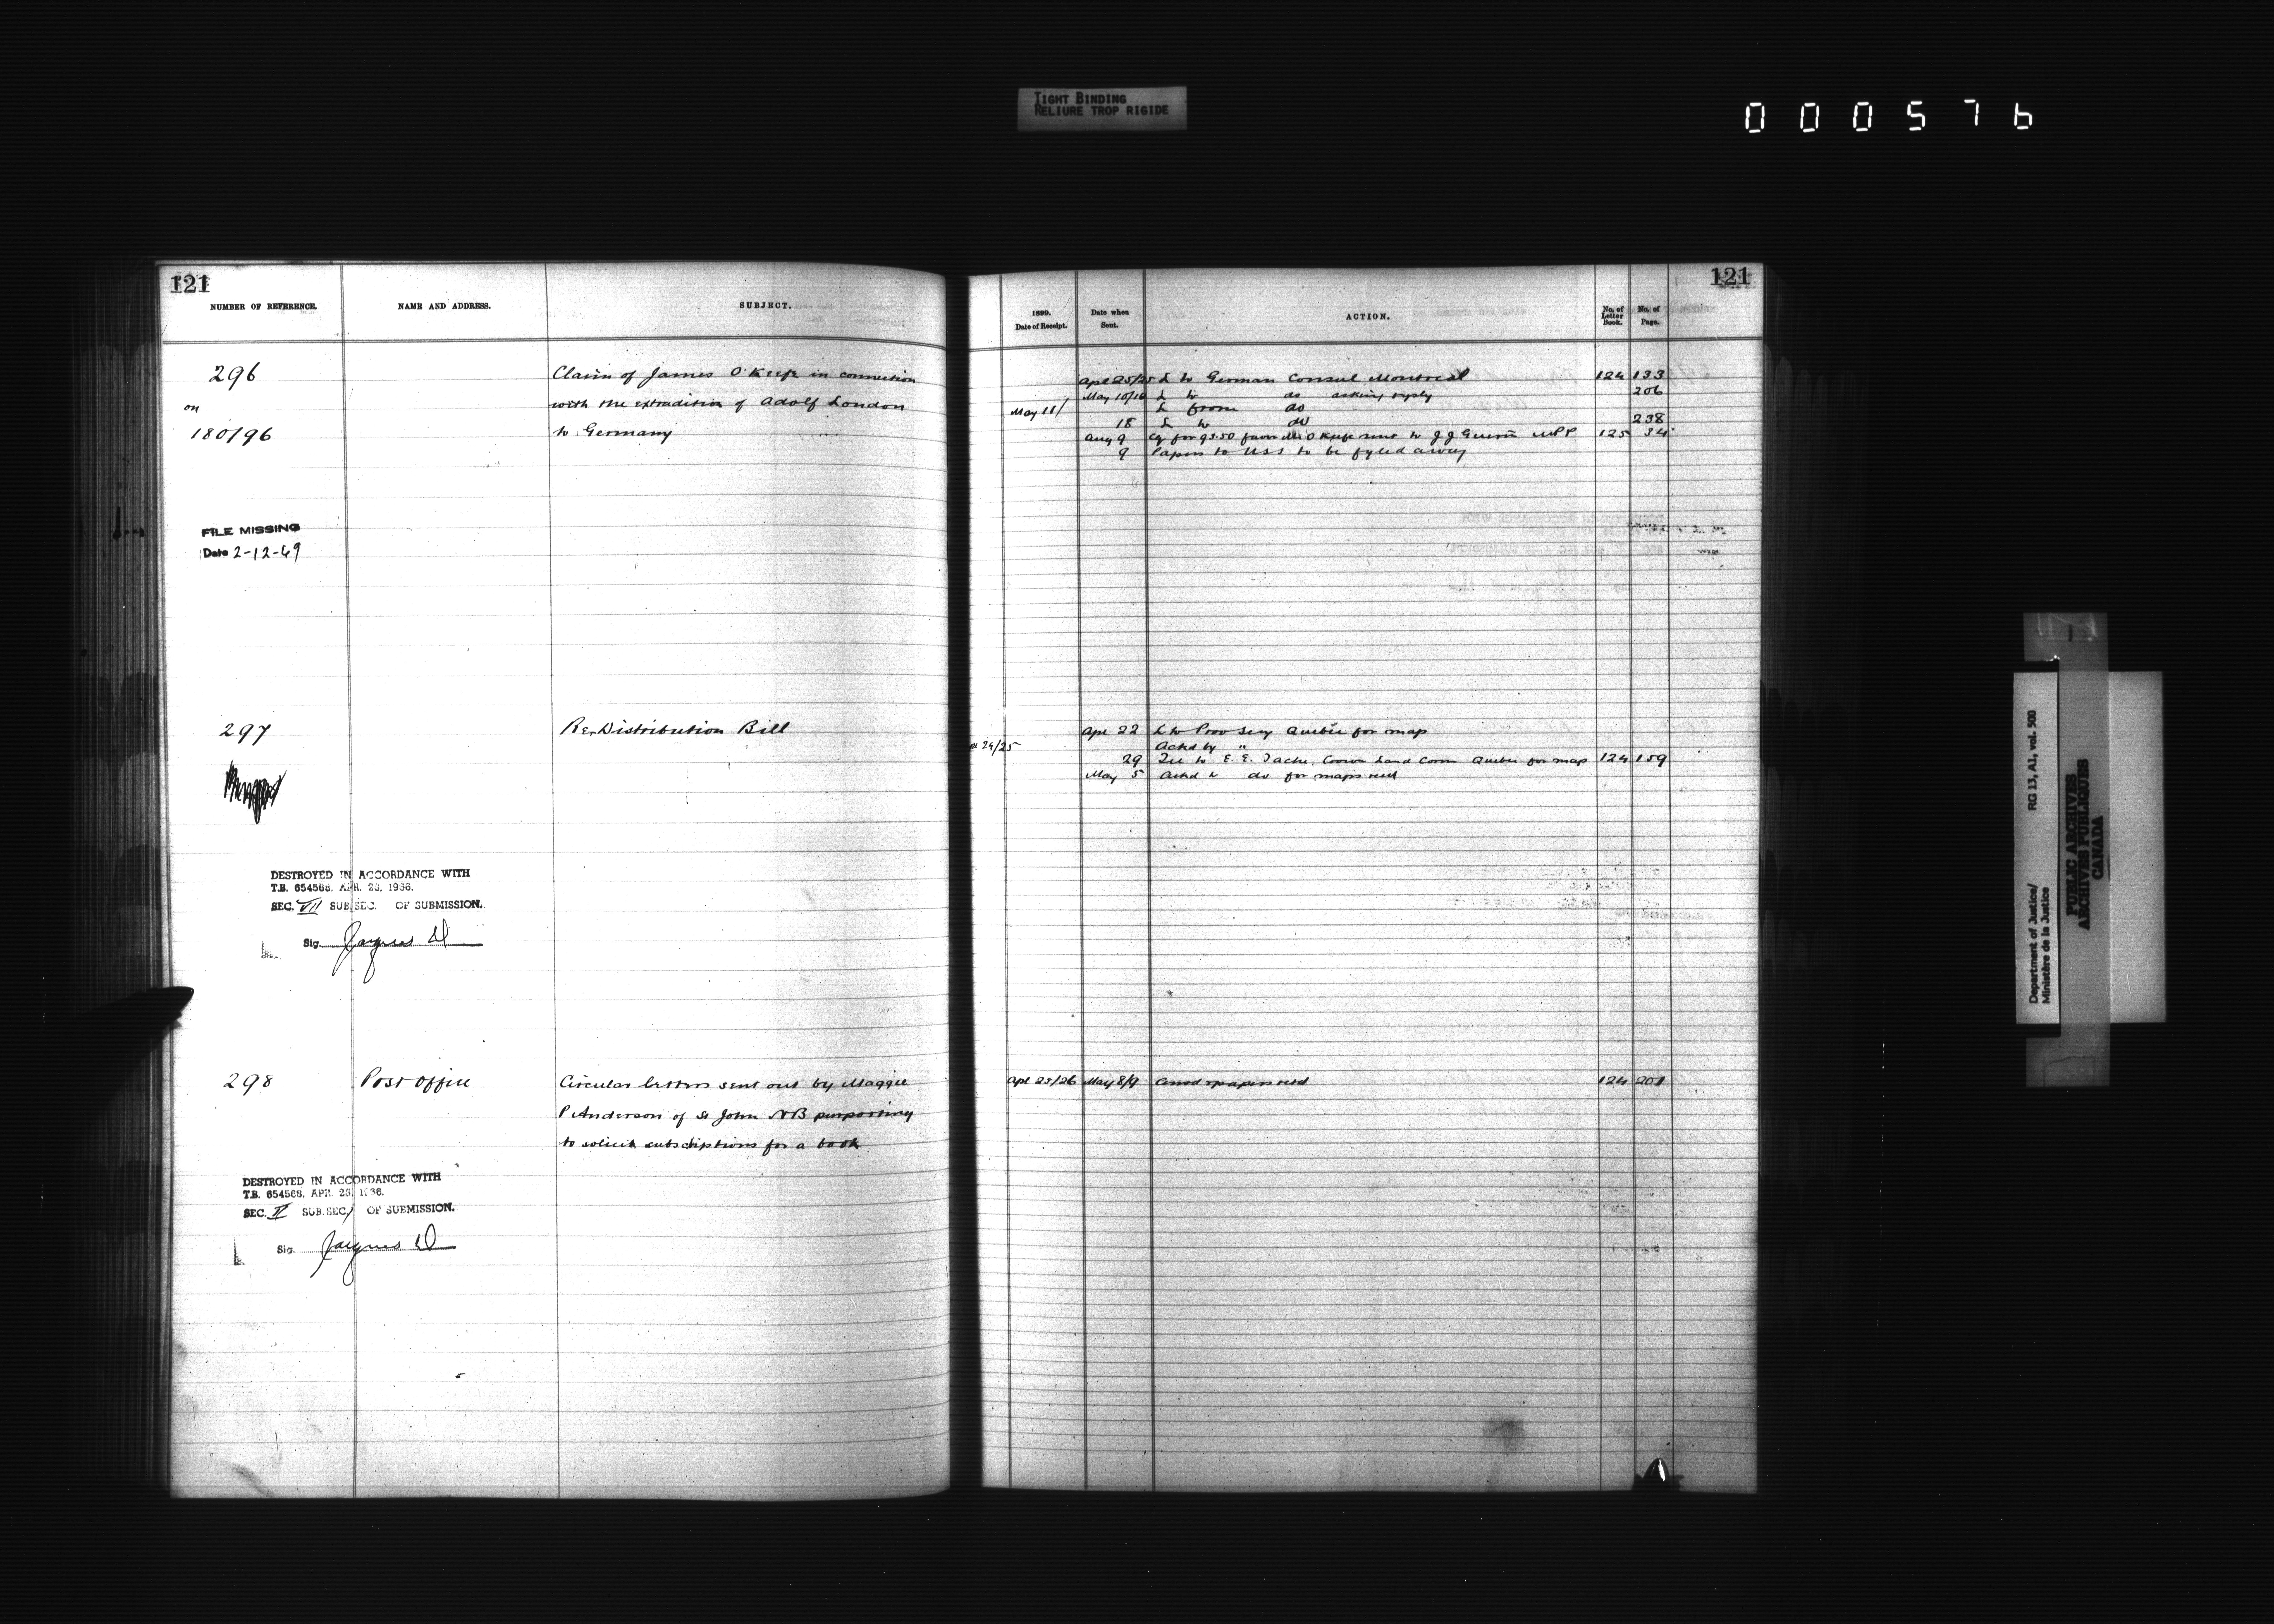 TIGHT BINDING
RELIURE TROP RIGIDE
000576
121
NUMBER OF REFERENCE. NAME AND ADDRESS. SUBJECT.
296 Claim of James O'Keefe in connection
on with the extradition of Adolf London
180/96 to Germany
FILE MISSING
Date 2-12-49
297 Re-Distribution Bill
DESTROYED IN ACCORDANCE WITH
T.B. 654566, APR. 23, 1966.
SEC. VII SUB.SEC. OF SUBMISSION.
Sig.
298 Post Office Circular letters sent out by Maggie
P Anderson of St John NB purporting
to solicit subscriptions for a book
DESTROYED IN ACCORDANCE WITH
T.B. 654566, APR. 23, 1966.
SEC. II SUB.SEC. 1 OF SUBMISSION.
Sig.
121
1899. Date of Receipt. Date when Sent. ACTION. No. of Letter Book. No. of Page.
Apl 25/25 L to German Consul Montreal 124 133
May 10/10 L to do asking reply 206
May 11/ L from do
18 L to do 238
Aug 9 Cq for 93.50 favor O'Keefe sent to J J Guerin MPP 125 34
9 Papers to USS to be fyled away
Apr 22 L to Prov Secy Quebec for map
24/25 Ackd by "
29 Tel to E. E. Tache, Crown Land Comr Quebec for map 124 159
May 5 Ackd to do for maps recd
Apl 25/26 May 8/9 papers retd 124 201
Department of Justice/
Ministère de la Justice
RG 13, A1, vol. 500
PUBLIC ARCHIVES
ARCHIVES PUBLIQUES
CANADA